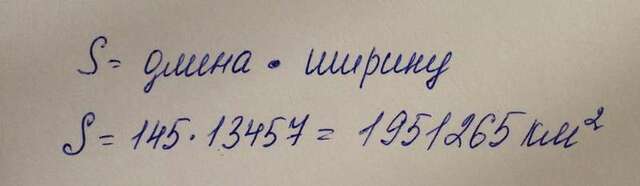 S = длина · ширину
S = 145 · 13457 = 1951265 км²